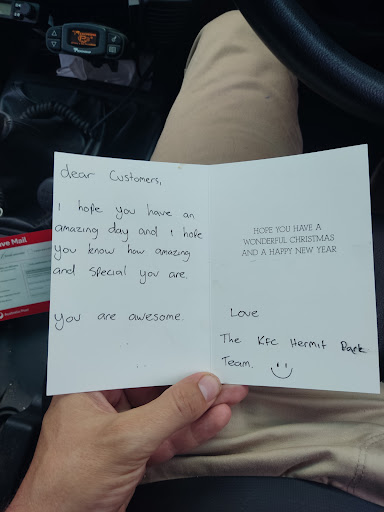 dear Customers,
I hope you have an
amazing day and I hope
you know how amazing
and special you are.
you are awesome.
HOPE YOU HAVE A
WONDERFUL CHRISTMAS
AND A HAPPY NEW YEAR
Love
The Kfc Hermit Park
Team.
ve Mail